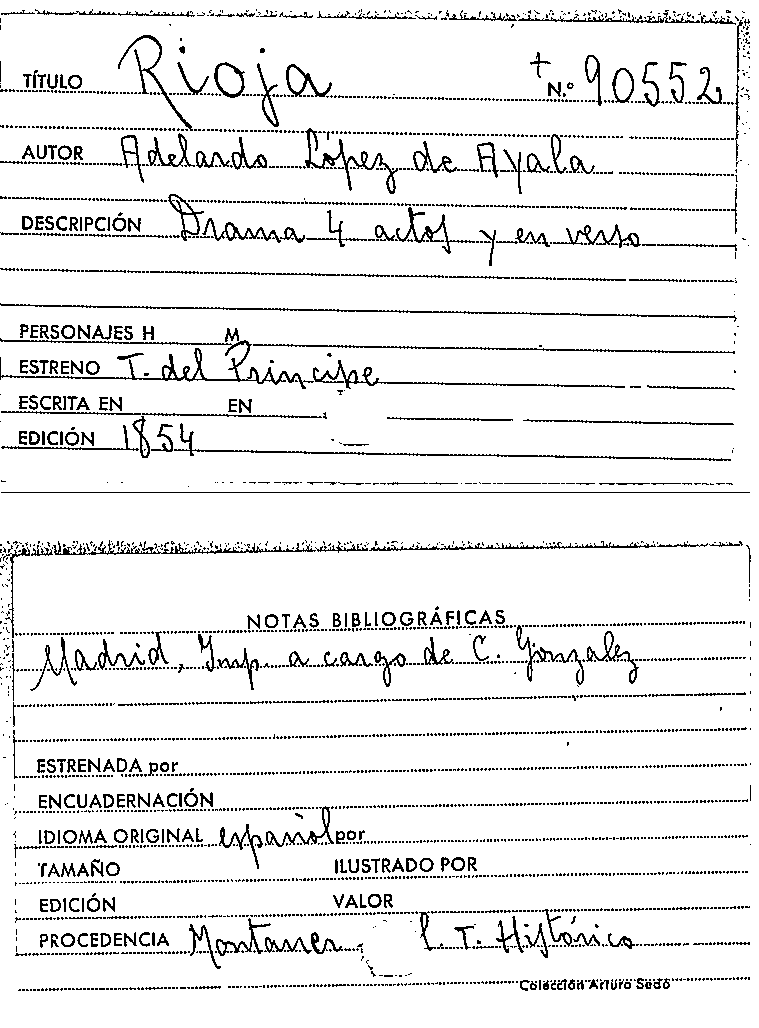 TÍTULO Rioja + N.º 90552
AUTOR Adelardo López de Ayala
DESCRIPCIÓN Drama 4 actos y en verso
PERSONAJES H M
ESTRENO T. del Principe
ESCRITA EN EN
EDICIÓN 1854
NOTAS BIBLIOGRÁFICAS
Madrid, Imp. a cargo de C. Gonzalez
ESTRENADA por
ENCUADERNACIÓN
IDIOMA ORIGINAL español por
TAMAÑO ILUSTRADO POR
EDICIÓN VALOR
PROCEDENCIA Montaner T. Histórico
Colección Arturo Sedó